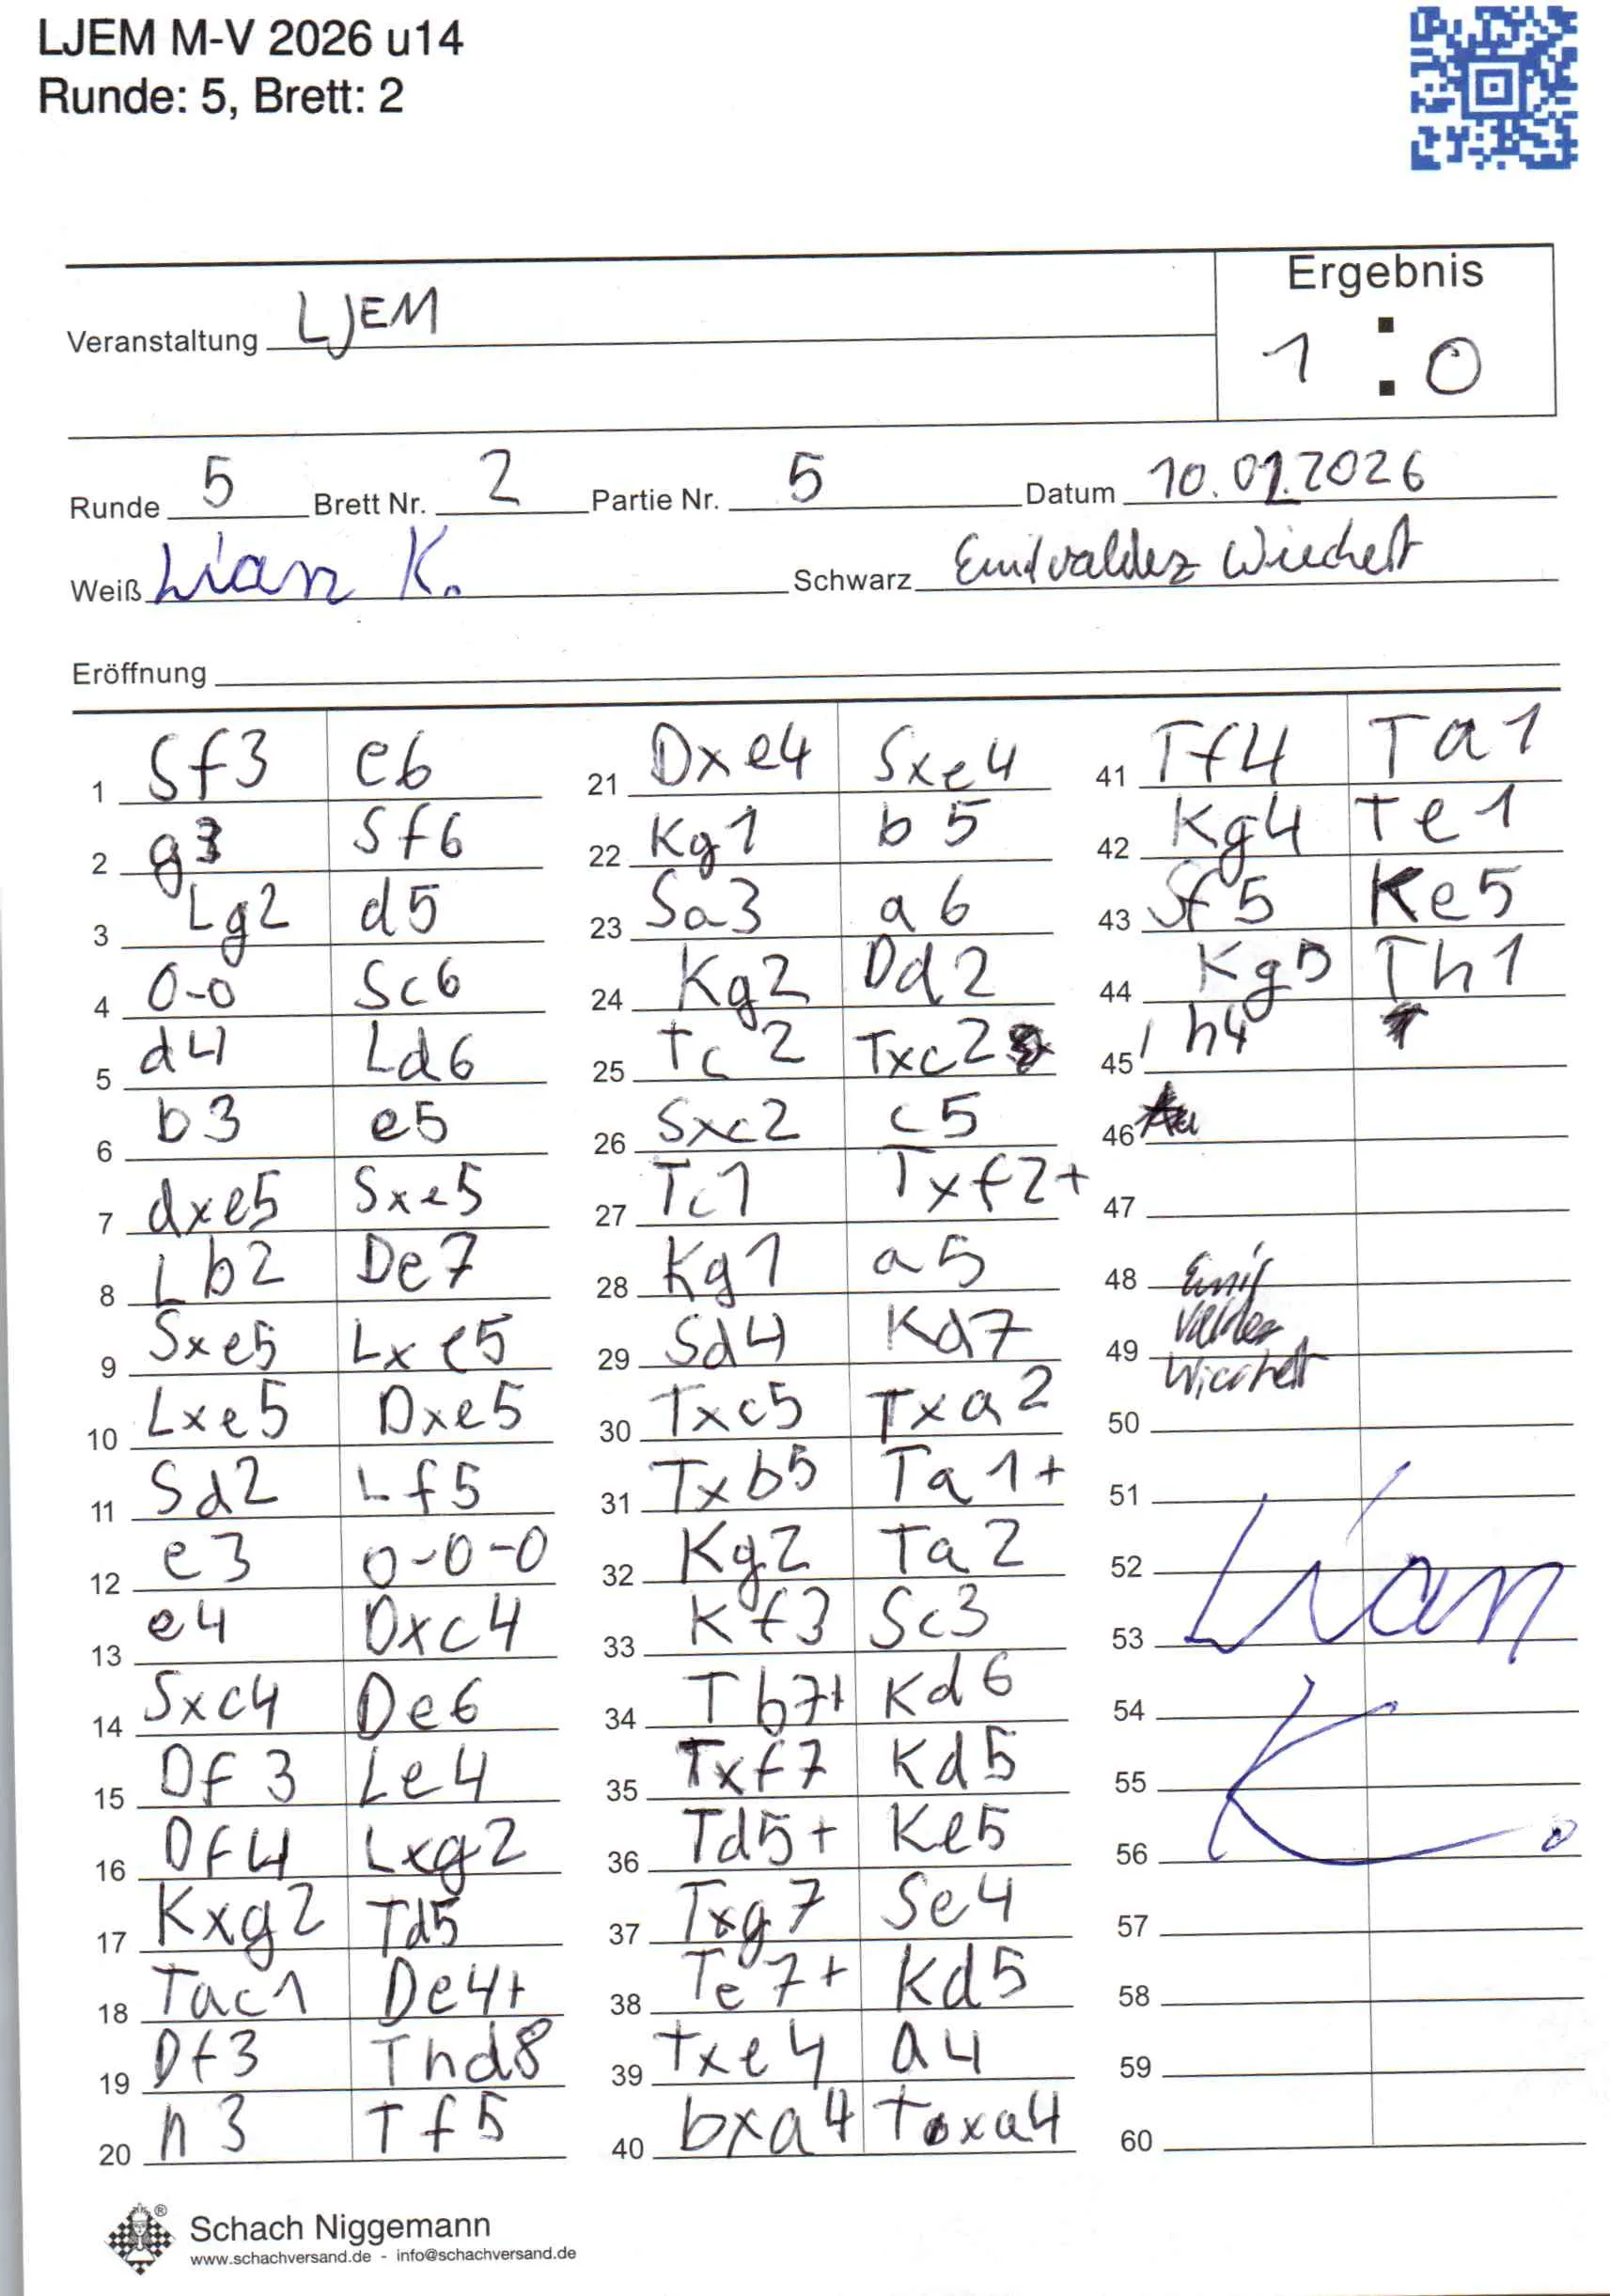 LJEM M-V 2026 u14
Runde: 5, Brett: 2
Ergebnis
Veranstaltung LJEM
1 : 0
Runde 5 Brett Nr. 2 Partie Nr. 5 Datum 10.01.2026
Weiß Lian K. Schwarz Emil valdez Wiechert
Eröffnung
1 Sf3 e6
2 g3 Sf6
3 Lg2 d5
4 0-0 Sc6
5 d4 Ld6
6 b3 e5
7 dxe5 Sxe5
8 Lb2 De7
9 Sxe5 Lxe5
10 Lxe5 Dxe5
11 Sd2 Lf5
12 e3 0-0-0
13 e4 Dxc4
14 Sxc4 De6
15 Df3 Le4
16 Df4 Lxg2
17 Kxg2 Td5
18 Tac1 De4+
19 Df3 Thd8
20 h3 Tf5
21 Dxe4 Sxe4
22 Kg1 b5
23 Sa3 a6
24 Kg2 Dd2
25 Tc2 Txc2
26 Sxc2 c5
27 Tc1 Txf2+
28 Kg1 a5
29 Sd4 Kd7
30 Txc5 Txa2
31 Txb5 Ta1+
32 Kg2 Ta2
33 Kf3 Sc3
34 Tb7+ Kd6
35 Txf7 Kd5
36 Td5+ Ke5
37 Txg7 Se4
38 Te7+ Kd5
39 Txe4 a4
40 bxa4 Txa4
41 Tf4 Ta1
42 Kg4 Te1
43 Sf5 Ke5
44 Kg5 Th1
45 h4
46
47
48 Emil
Valdez
49 Wiechert
50
51
52 Lian
53
54 K.
55
56
57
58
59
60
®
Schach Niggemann
www.schachversand.de - info@schachversand.de